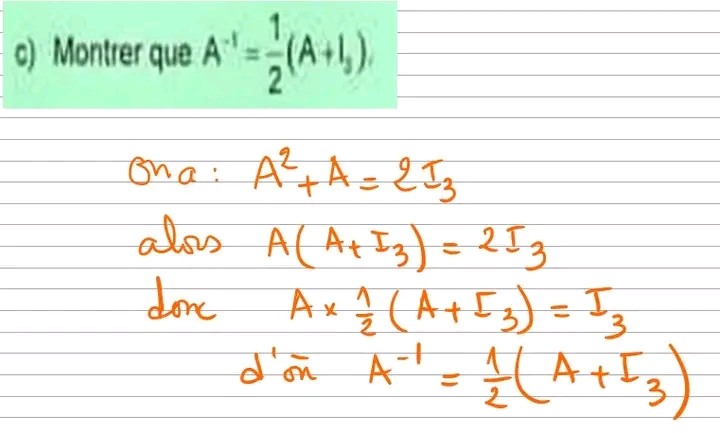 c) Montrer que A⁻¹ = 1/2 (A + I₃).
On a : A² + A = 2 I₃
alors A ( A + I₃ ) = 2 I₃
donc A × 1/2 ( A + I₃ ) = I₃
d'où A⁻¹ = 1/2 ( A + I₃ )